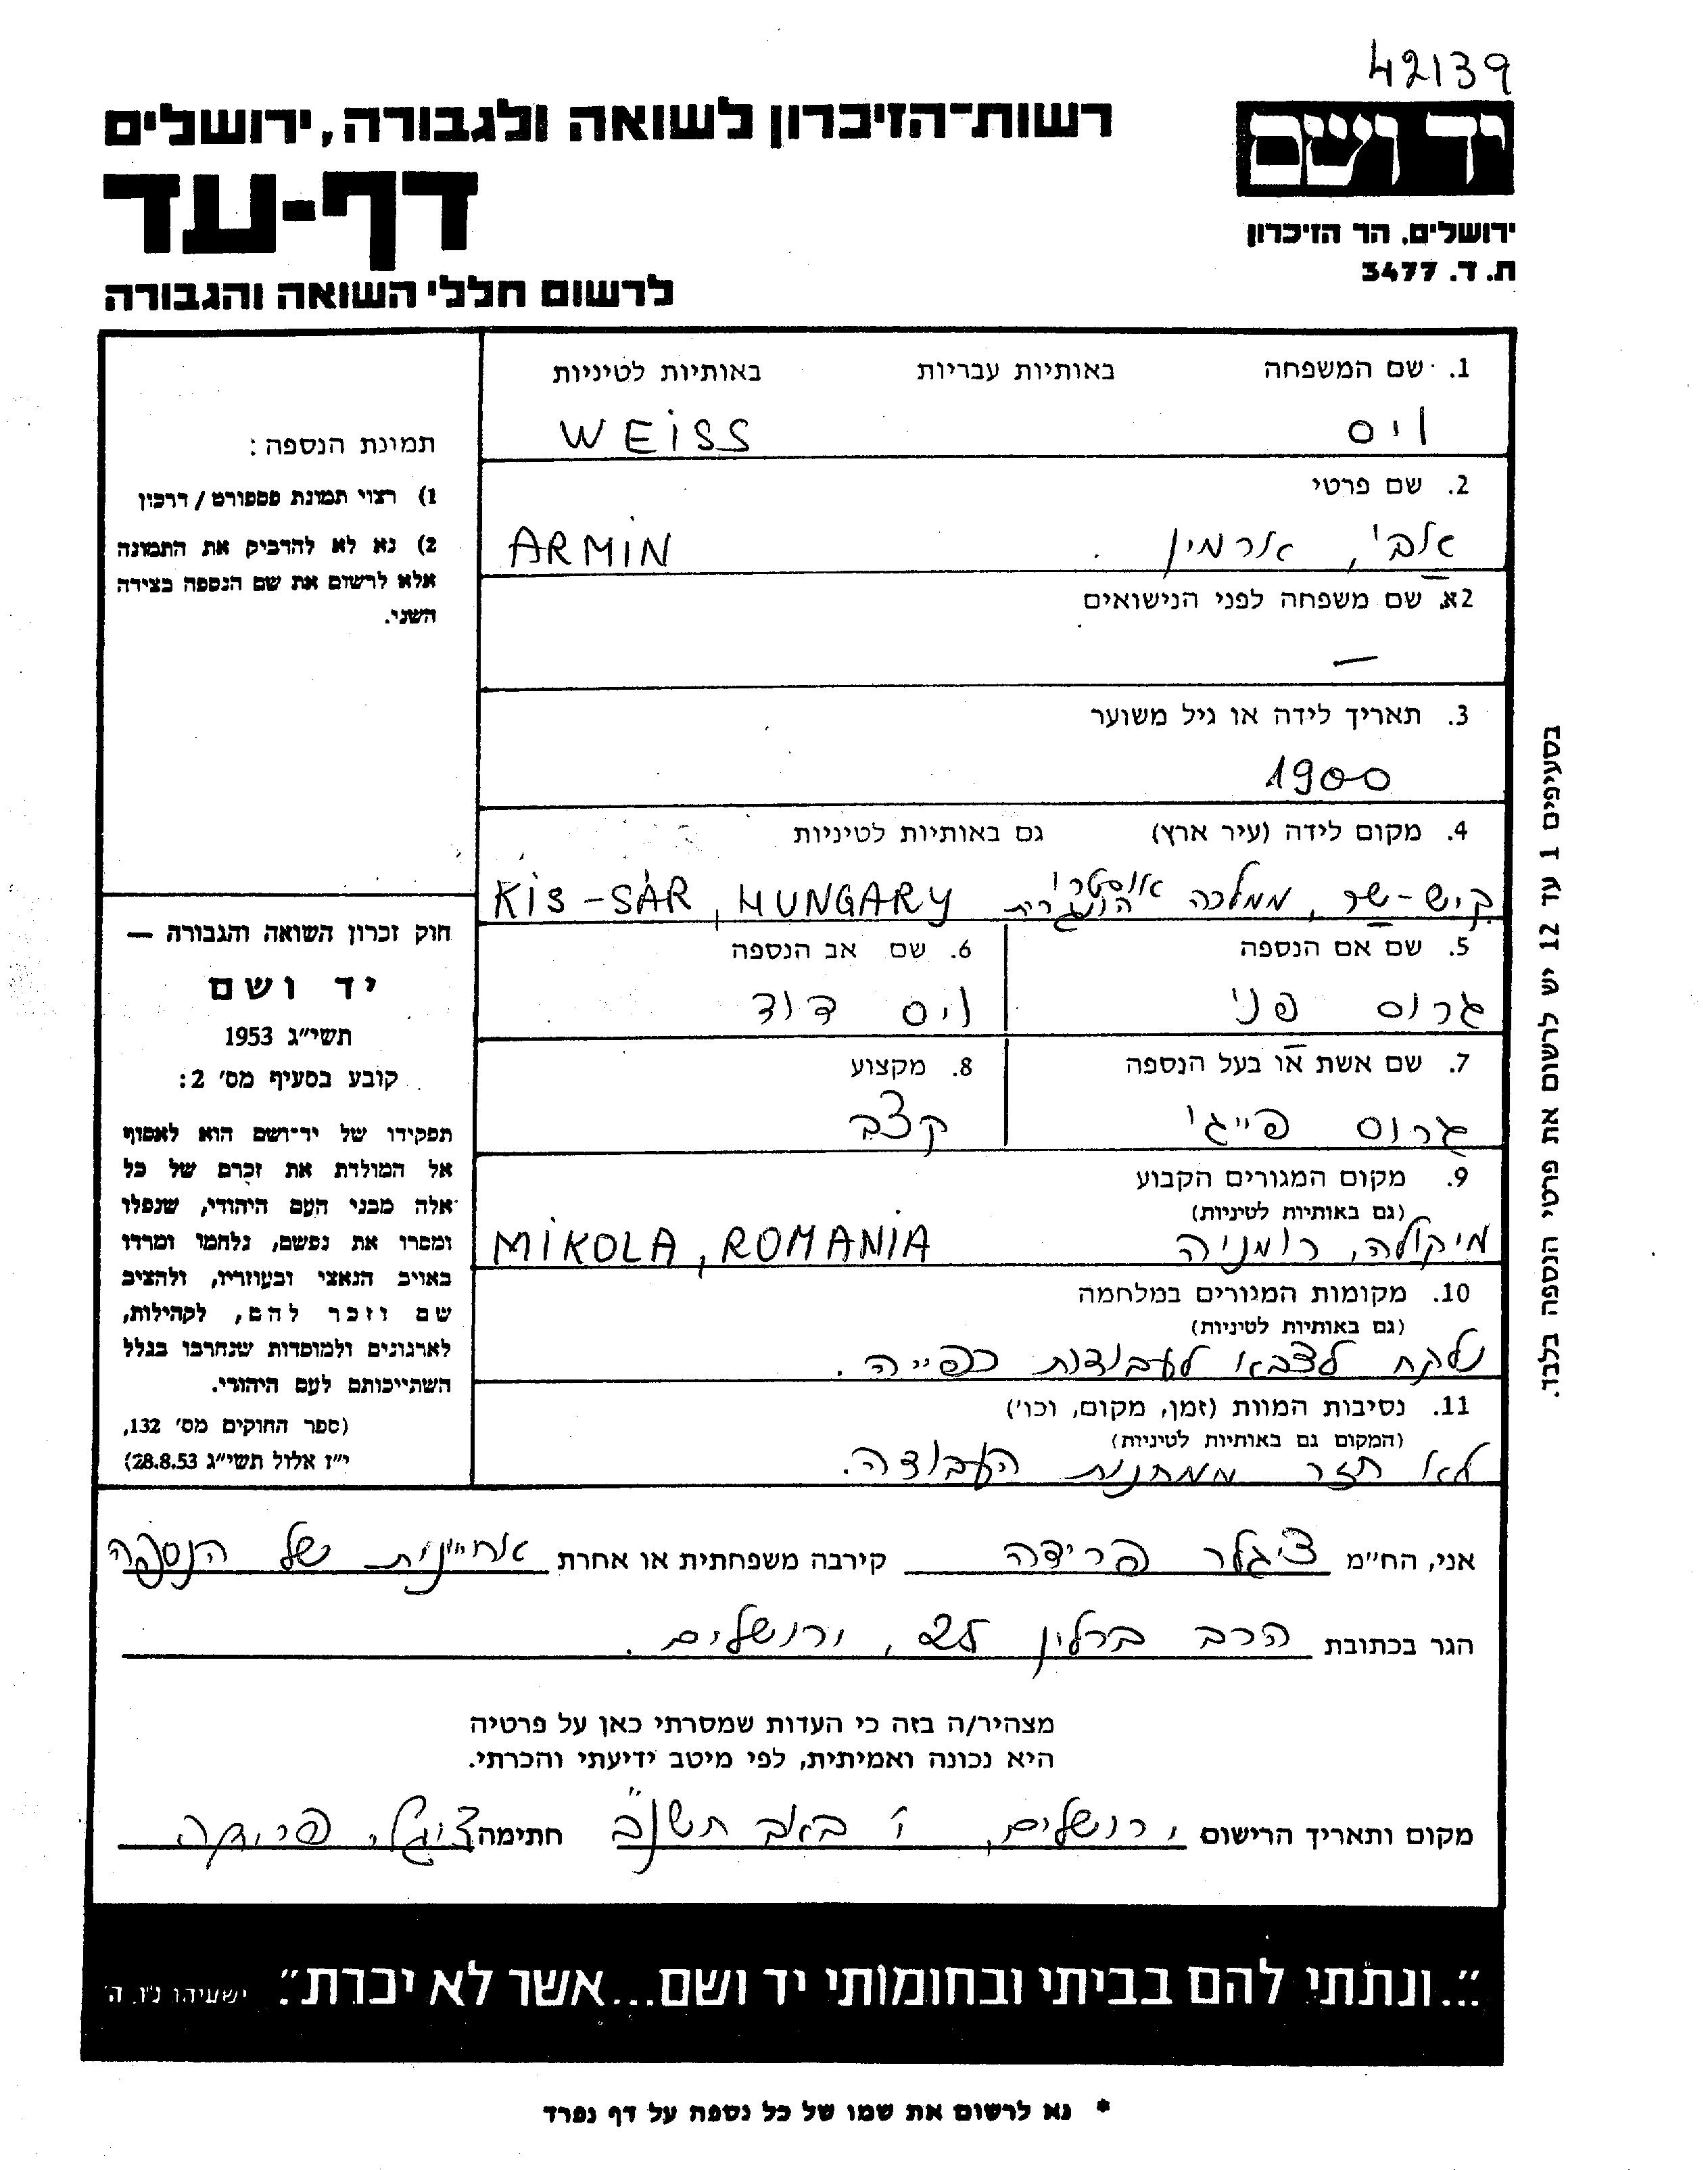 42139
יד ושם
רשות־הזיכרון לשואה ולגבורה, ירושלים
דף-עד
ירושלים, הר הזיכרון
ת. ד. 3477
לרשום חללי השואה והגבורה
1. שם המשפחה באותיות עבריות באותיות לטיניות
ויס WEiSS
2. שם פרטי
אבי, ארמין ARMiN
2א. שם משפחה לפני הנישואים
—
3. תאריך לידה או גיל משוער
1900
4. מקום לידה (עיר ארץ) גם באותיות לטיניות
קיש-שר, ממלכה אוסטרו הונגרית KiS-SÁR, HUNGARY
5. שם אם הנספה 6. שם אב הנספה
גרוס פני ויס דוד
7. שם אשת או בעל הנספה 8. מקצוע
גרוס פייגי קצב
9. מקום המגורים הקבוע
(גם באותיות לטיניות)
מיקולה, רומניה MiKOLA, ROMANiA
10. מקומות המגורים במלחמה
(גם באותיות לטיניות)
נלקח לצבא לעבודות כפייה.
11. נסיבות המוות (זמן, מקום, וכו')
(המקום גם באותיות לטיניות)
לא חזר ממחנות העבודה.
תמונת הנספה:
1) רצוי תמונת פספורט/דרכון
2) נא לא להדביק את התמונה
אלא לרשום את שם הנספה בצידה
השני.
חוק זכרון השואה והגבורה —
יד ושם
תשי"ג 1953
קובע בסעיף מס' 2:
תפקידו של יד־ושם הוא לאסוף
אל המולדת את זכרם של כל
אלה מבני העם היהודי, שנפלו
ומסרו את נפשם, נלחמו ומרדו
באויב הנאצי ובעוזריו, ולהציב
שם וזכר להם, לקהילות,
לארגונים ולמוסדות שנחרבו בגלל
השתייכותם לעם היהודי.
(ספר החוקים מס' 132,
י"ז אלול תשי"ג 28.8.53)
בסעיפים 1 עד 12 יש לרשום את פרטי הנספה בלבד.
אני, הח"מ ציגלר פרידה קירבה משפחתית או אחרת אחיינית של הנספה
הגר בכתובת הרב ברלין 25, ירושלים.
מצהיר/ה בזה כי העדות שמסרתי כאן על פרטיה
היא נכונה ואמיתית, לפי מיטב ידיעתי והכרתי.
מקום ותאריך הרישום ירושלים, י באב חתימה ציגלר פרידה
"...ונתתי להם בביתי ובחומותי יד ושם...אשר לא יכרת". ישעיהו נ"ו, ה'
* נא לרשום את שמו של כל נספה על דף נפרד